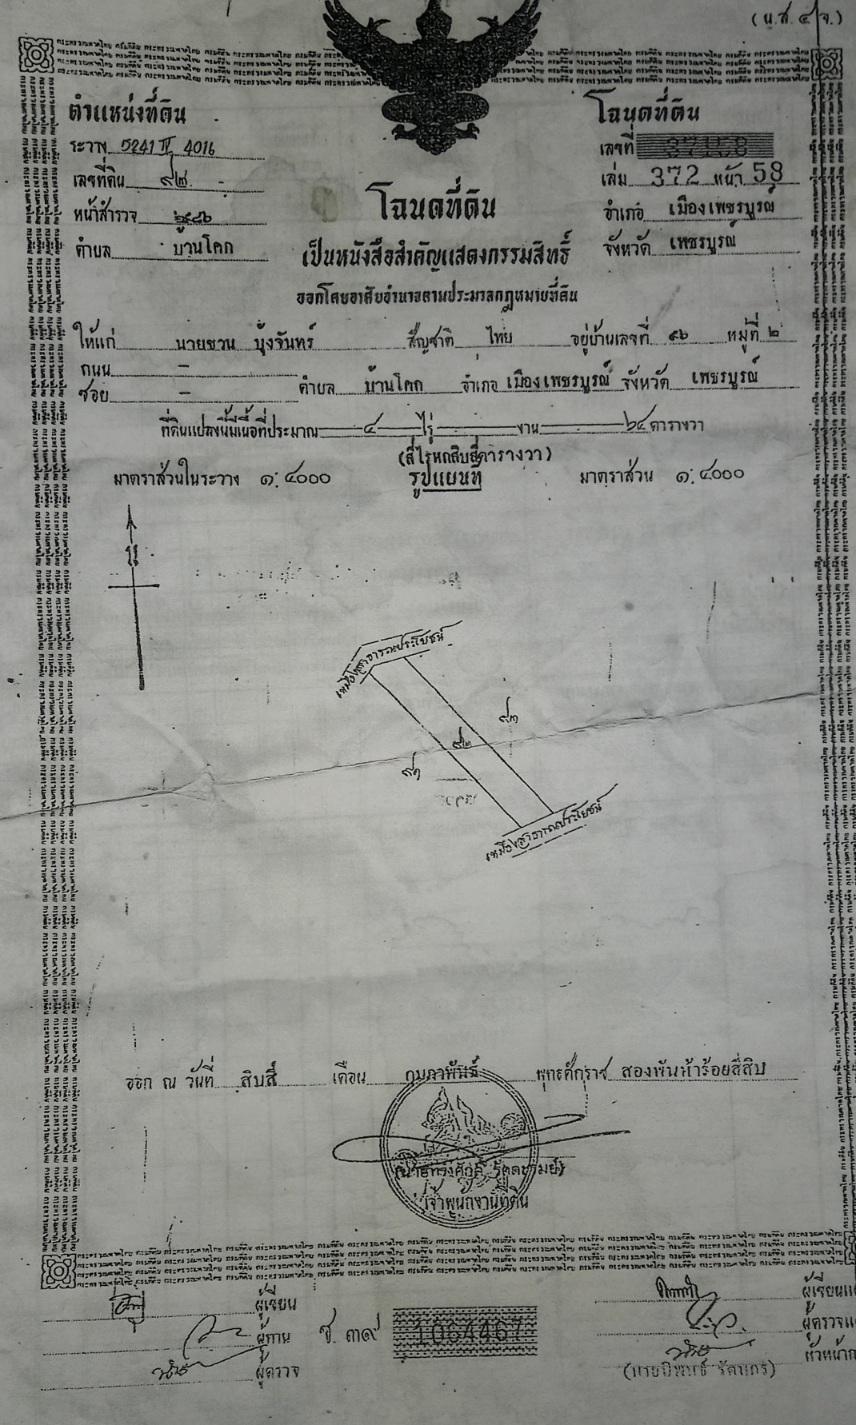 (น.ส. ๔ จ.)
ตำแหน่งที่ดิน
ระวาง 5241 IV 4016
เลขที่ดิน ๙๒
หน้าสำรวจ
ตำบล บ้านโคก
โฉนดที่ดิน
เลขที่
เล่ม 372 หน้า 58
อำเภอ เมืองเพชรบูรณ์
จังหวัด เพชรบูรณ์
โฉนดที่ดิน
เป็นหนังสือสำคัญแสดงกรรมสิทธิ์
ออกโดยอาศัยอำนาจตามประมวลกฎหมายที่ดิน
ให้แก่ นายชวน บุ้งจันทร์ สัญชาติ ไทย อยู่บ้านเลขที่ ๙๖ หมู่ที่ ๒
ถนน –
ซอย – ตำบล บ้านโคก อำเภอ เมืองเพชรบูรณ์ จังหวัด เพชรบูรณ์
ที่ดินแปลงนี้มีเนื้อที่ประมาณ ๔ ไร่ งาน ๖๔ ตารางวา
(สี่ไร่หกสิบสี่ตารางวา)
มาตราส่วนในระวาง ๑:๔๐๐๐ รูปแผนที่ มาตราส่วน ๑:๔๐๐๐
น
เหมืองสาธารณประโยชน์
๙๓
๙๒
๙๑
เหมืองสาธารณประโยชน์
ออก ณ วันที่ สิบสี่ เดือน กุมภาพันธ์ พุทธศักราช สองพันห้าร้อยสี่สิบ
เจ้าพนักงานที่ดิน
ผู้เขียน
ผู้ทาน
ผู้ตรวจ
ช. ๓๙ 1064467
ผู้เขียนแผ
ผู้ตรวจแ
หัวหน้าก